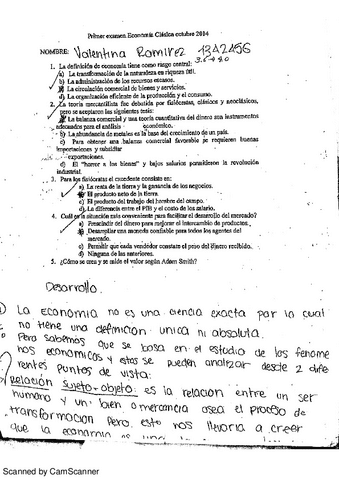 Primer examen Economía Clásica octubre 2014
NOMBRE: Valentina Ramirez 1342456
1. La definición de economía tiene como rasgo central:
a) La transformación de la naturaleza en riqueza útil.
b) La administración de los recursos escasos.
La circulación comercial de bienes y servicios.
d) La organización eficiente de la producción y el consumo.
2. La teoría mercantilista fue debatida por fisiócratas, clásicos y neoclásicos,
pero se aceptaron las siguientes tesis:
La balanza comercial y una teoría cuantitativa del dinero son instrumentos
adecuados para el análisis económico.
b) La abundancia de metales es la base del crecimiento de un país.
c) Para obtener una balanza comercial favorable se requieren buenas
importaciones y subsidiar
exportaciones.
d) El "horror a los bienes" y bajos salarios permitieron la revolución
industrial.
3. Para los fisiócratas el excedente consiste en:
a) La renta de la tierra y la ganancia de los negocios.
El producto neto de la tierra.
c) El producto del trabajo del hombre del campo.
d) La diferencia entre el PIB y el costo de los salarios.
4. Cuál es la situación más conveniente para facilitar el desarrollo del mercado?
a) Prescindir del dinero para mejorar el intercambio de productos.
Desarrollar una moneda confiable para todos los agentes del
mercado.
c) Permitir que cada vendedor constate el peso del dinero recibido.
d) Ninguna de las anteriores.
5. ¿Cómo se crea y se mide el valor según Adam Smith?
Desarrollo.
La economía no es una ciencia exacta por la cual
no tiene una definicion unica ni absoluta.
Pero sabemos que se basa en el estudio de los fenome
nos economicos y estos se pueden analizar desde 2 dife
rentes puntos de vista:
Relación sujeto-objeto: es la relacion entre un ser
humano y un bien o mercancia osea el proceso de
transformacion pero esto nos llevaria a creer
que la economia es una
Scanned by CamScanner